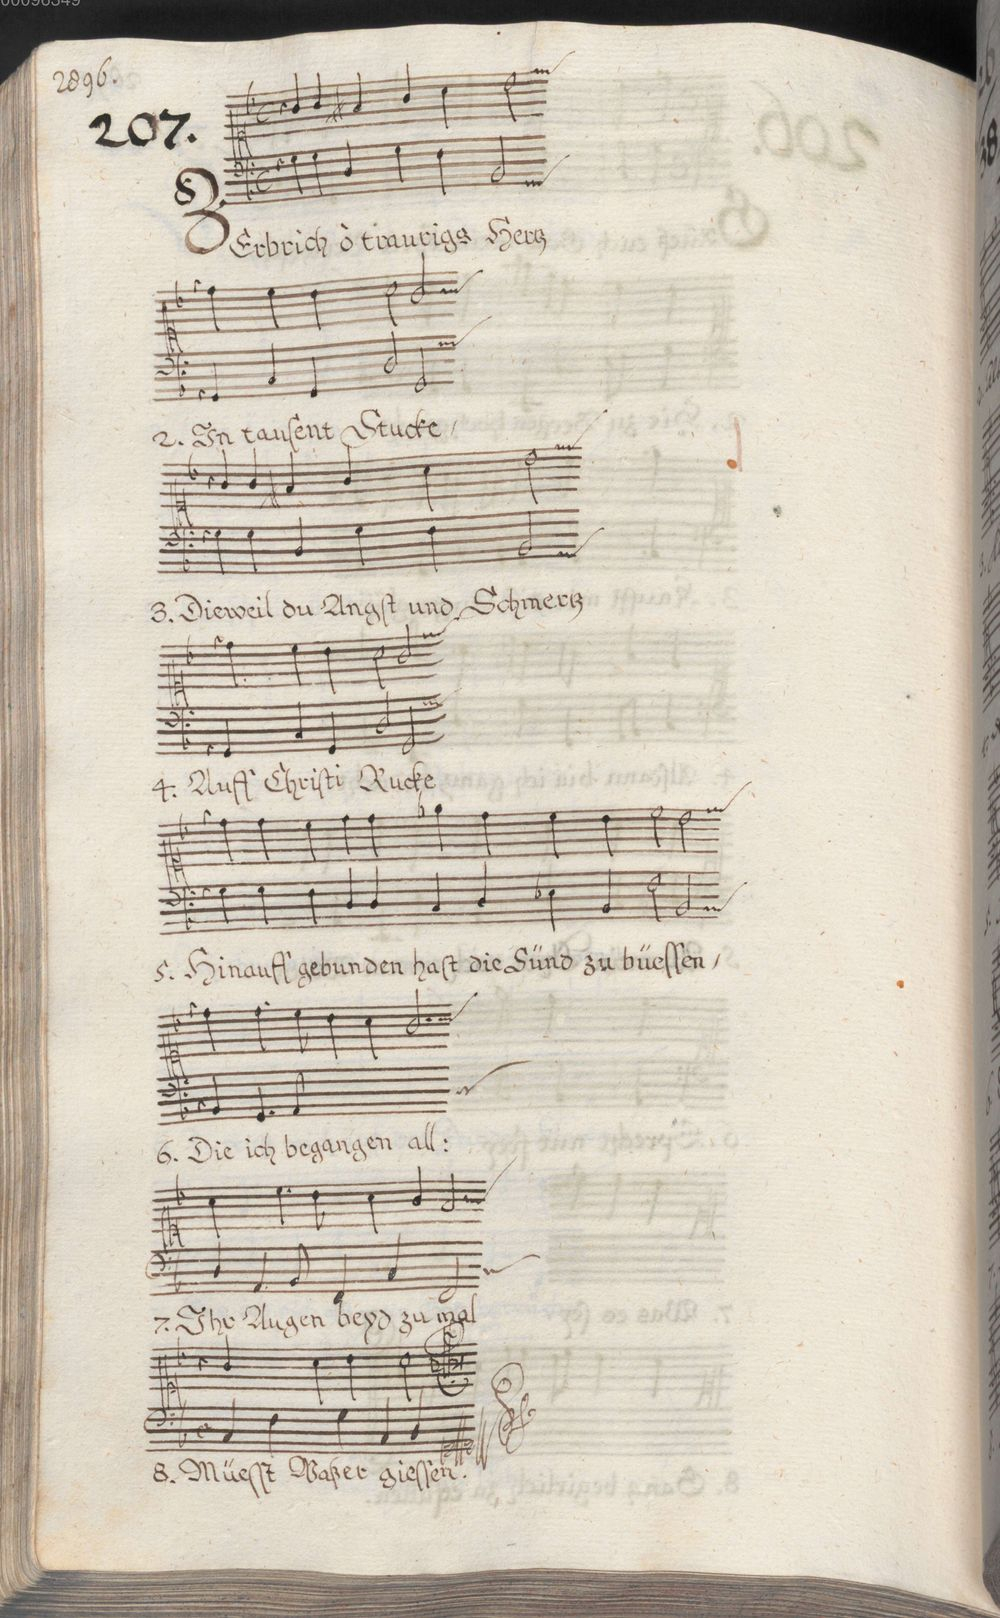 00096349
2896.
207.
ZErbrich ò traurigs Hertz
2. In tausent Stucke /
3. Dieweil du Angst und Schmertz
4. Auff Christi Rucke
5. Hinauff gebunden hast die Sünd zu büessen /
6. Die ich begangen all:
7. Ihr Augen beyd zu mal
8. Müesst Waßer giessen.